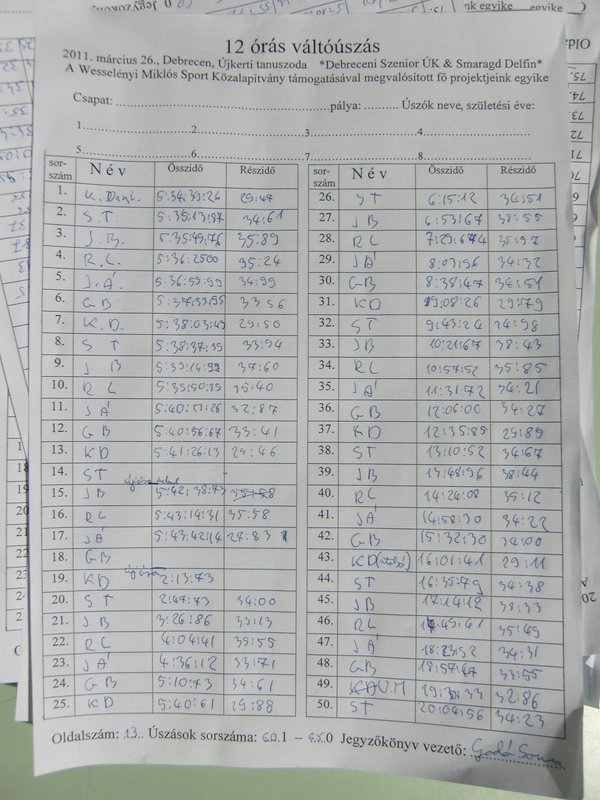 12 órás váltóúszás
2011. március 26., Debrecen, Újkerti tanuszoda *Debreceni Szenior ÚK & Smaragd Delfin*
A Wesselényi Miklós Sport Közalapítvány támogatásával megvalósított fő projektjeink egyike
Csapat: pálya: Úszók neve, születési éve:
1. 2. 3. 4.
5. 6. 7. 8.
sorszám Név Összidő Részidő
1. K. Dani. 5:34:39:26 29:47
2. S.T. 5:35:13:87 34:61
3. J.B. 5:35:49:76 35:89
4. R.C. 5:36:2500 35:24
5. J.Á. 5:36:59:99 34:99
6. GB 5:37:33:55 33 56
7. K.D. 5:38:03:45 29:50
8. ST 5:38:37:39 33:94
9. JB 37:60
10. RL 35:40
11. JÁ 5:40:23:26 32:87
12. GB 5:40:56:67 33:41
13. KD 5:41:26:13 29:46
14. ST
15. JB 5:42:38:73
16. RL 5:43:14:31 35:58
17. JÁ 5:43:42:14 27:83
18. GB
19. KD 2:13:73
20. ST 2:47:73 34:00
21. JB 3:26:86 39:13
22. RL 4:04:41
23. JÁ 4:36:12 33:71
24. GB 5:10:73 34:61
25. KD 5:40:61 29:88
sorszám Név Összidő Részidő
26. ST 6:15:12 34:51
27. JB 6:53:67 38:55
28. RL 35:97
29. JÁ 8:03:96 34:32
30. GB 8:38:47 34:51
31. KD 9:08:26 29:79
32. ST 9:43:24 34:98
33. JB 10:21:67 38:43
34. RL 10:57:52 35:85
35. JÁ 11:31:72 34:21
36. GB 12:06:00 34:27
37. KD 12:35:89 29:89
38. ST 13:10:52 34:67
39. JB 13:48:96 38:44
40. RL 14:24:08 35:12
41. JÁ 14:58:30 34:22
42. GB 15:32:30 34:00
43. KD 16:01:41 29:11
44. ST 16:35:79 34:38
45. JB 17:14:12 38:33
46. RL 35:49
47. JÁ 18:23:92 34:31
48. GB 18:57:47 33:55
49. 32:86
50. ST 20:04:56 34:23
Oldalszám: 13. Úszások sorszáma: 60.1 – 65.0 Jegyzőkönyv vezető: